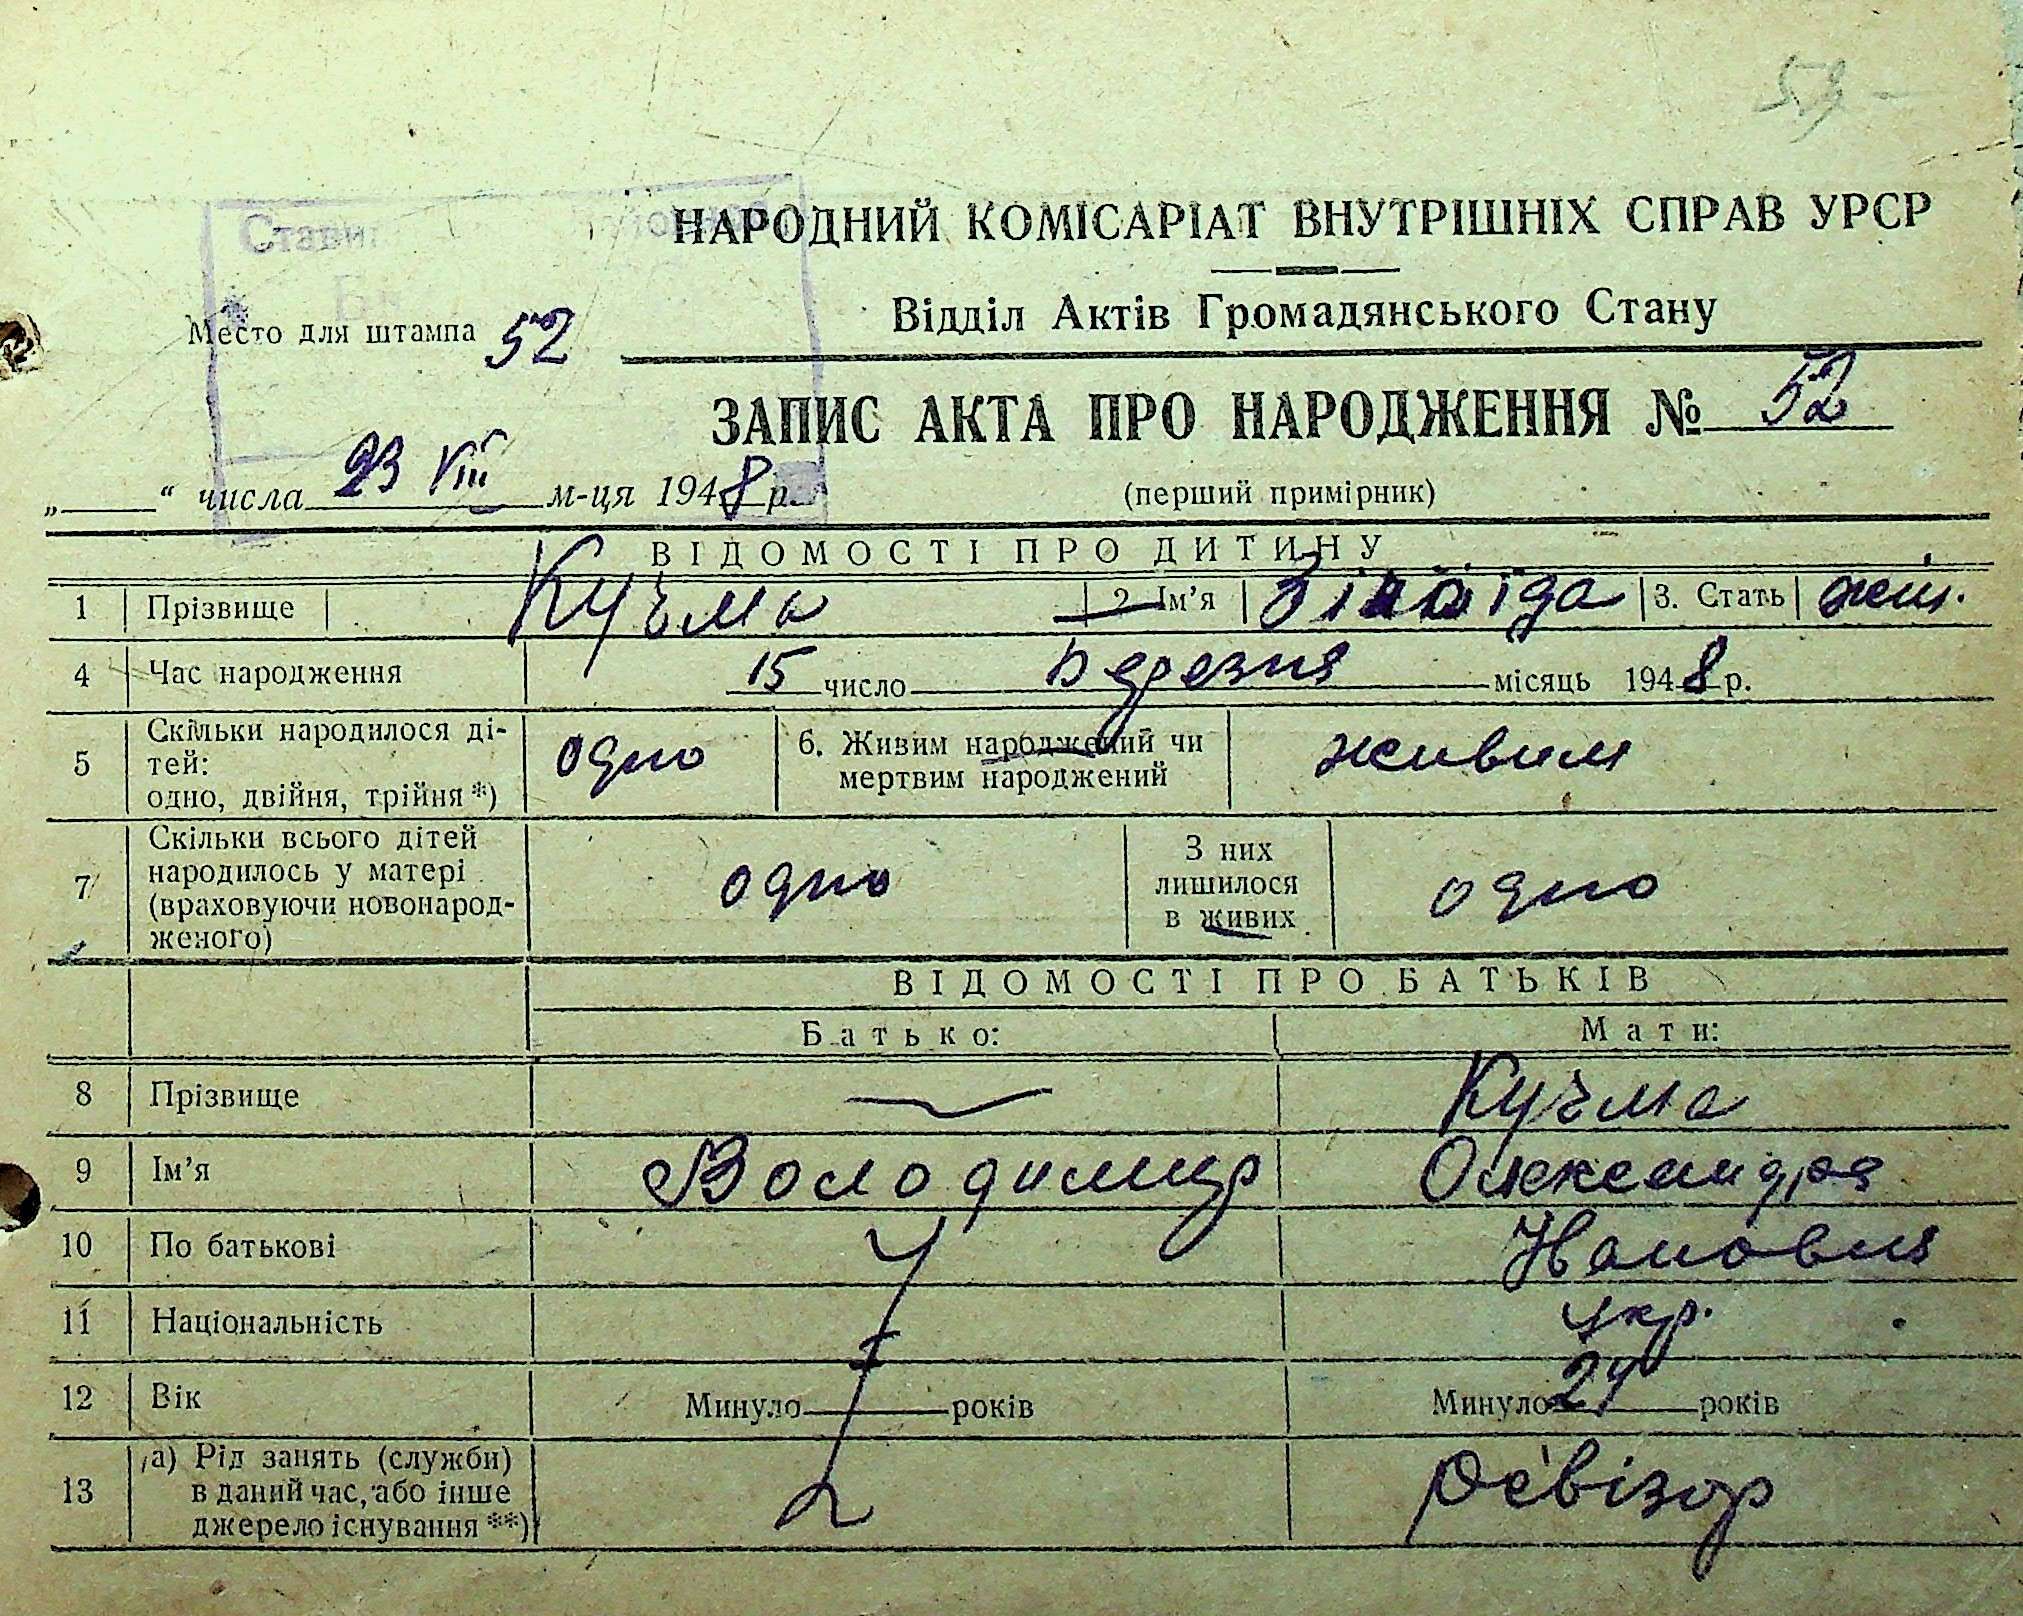 59
НАРОДНИЙ КОМІСАРІАТ ВНУТРІШНІХ СПРАВ УРСР
Відділ Актів Громадянського Стану
Место для штампа 52
ЗАПИС АКТА ПРО НАРОДЖЕННЯ № 52
„ “ числа 23 VIII м-ця 1948 р.
(перший примірник)
ВІДОМОСТІ ПРО ДИТИНУ
1 Прізвище Кучма 2 Ім’я Зінаїда 3. Стать жін.
4 Час народження 15 число Березня місяць 1948 р.
5 Скільки народилося ді-
тей:
одно, двійня, трійня *) одно 6. Живим народжений чи
мертвим народжений живим
7 Скільки всього дітей
народилось у матері
(враховуючи новонарод-
женого) одно З них
лишилося
в живих одно
ВІДОМОСТІ ПРО БАТЬКІВ
Батько: Мати:
8 Прізвище — Кучма
9 Ім’я Володимир Олександра
10 По батькові
11 Національність укр.
12 Вік Минуло років Минуло 24 років
13 а) Рід занять (служби)
в даний час, або інше
джерело існування **) Ревізор